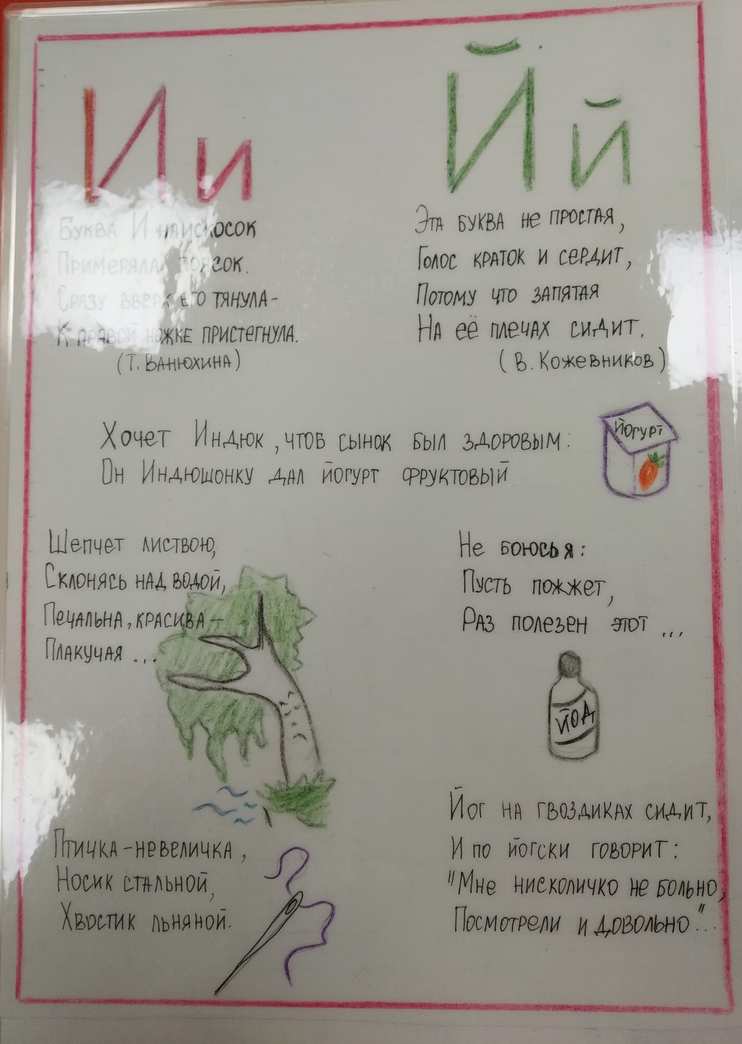 Ии
Буква И наискосок
Примеряла поясок.
Сразу вверх его тянула-
К правой ножке пристегнула.
(Т. Ванюхина)
Йй
Эта буква не простая,
Голос краток и сердит,
Потому что запятая
На её плечах сидит.
(В. Кожевников)
Хочет Индюк, чтоб сынок был здоровым:
Он Индюшонку дал йогурт фруктовый
Йогурт
Шепчет листвою,
Склонясь над водой,
Печальна, красива –
Плакучая ...
Не боюсь я:
Пусть пожжет,
Раз полезен этот ...
Йод
Птичка-невеличка,
Носик стальной,
Хвостик льняной.
Йог на гвоздиках сидит,
И по йогски говорит:
"Мне нисколичко не больно,
Посмотрели и довольно"...